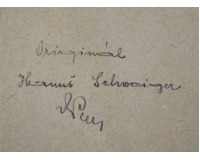 Originál
Hanuš Schwaiger